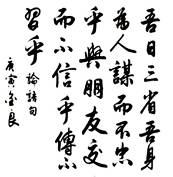 吾日三省吾身
為人謀而不忠
乎與朋友交
而不信乎傳不
習乎
論語句
庚寅金良